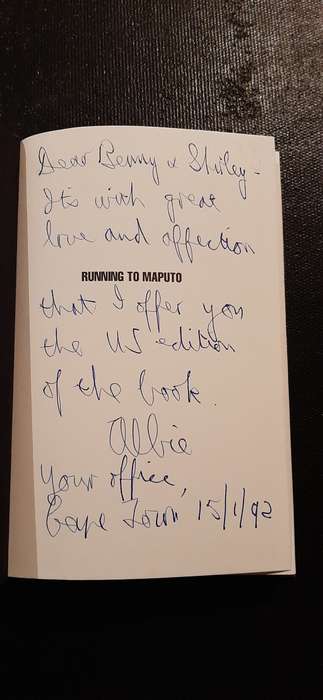 Dear Benny & Shirley -
It's with great
love and affection
RUNNING TO MAPUTO
that I offer you
the US edition
of the book.
Albie
Your office,
Cape Town 15/1/92